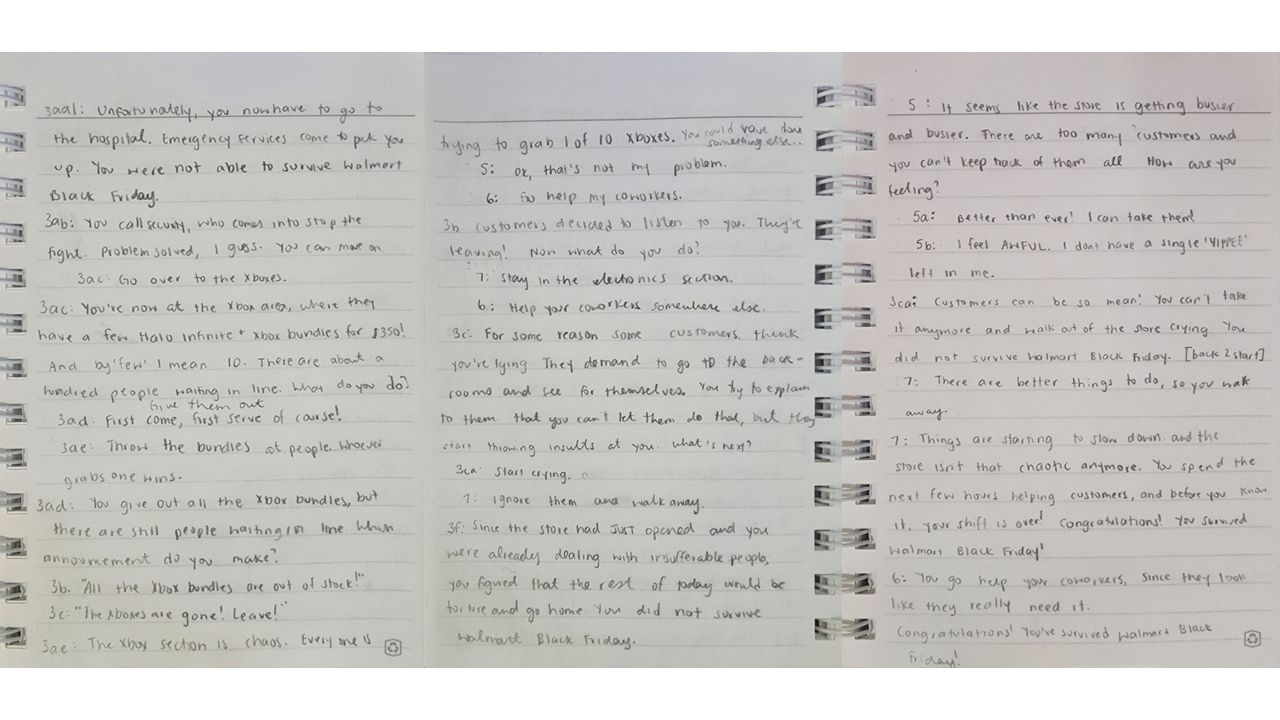 3aa1: Unfortunately, you now have to go to
the hospital. Emergency services come to pick you
up. You were not able to survive Walmart
Black Friday.
3ab: You call security, who comes into stop the
fight. Problem solved, I guess. You can move on
3ac: Go over to the Xboxes.
3ac: You're now at the Xbox area, where they
have a few Halo Infinite + Xbox bundles for $350!
And by 'few' I mean 10. There are about a
hundred people waiting in line. What do you do?
Give them out
3ad: First come, first serve of course!
3ae: Throw the bundles at people. Whoever
grabs one wins.
3ad: You give out all the Xbox bundles, but
there are still people waiting in line. Which
announcement do you make?
3b. "All the Xbox bundles are out of stock!"
3c: "The Xboxes are gone! Leave!"
3ae: The Xbox section is chaos. Everyone is
trying to grab 1 of 10 Xboxes. You could have done
something else...
5: ok, that's not my problem.
6: Go help my coworkers.
3b Customers decided to listen to you. They're
leaving! Now what do you do?
7: Stay in the electronics section.
6: Help your coworkers somewhere else.
3c: For some reason some customers think
you're lying. They demand to go to the back-
rooms and see for themselves. You try to explain
to them that you can't let them do that, but they
start throwing insults at you. What's next?
3ca: Start crying.
7: Ignore them and walk away.
3f: Since the store had JUST opened and you
were already dealing with insufferable people,
you figured that the rest of today would be
torture and go home. You did not survive
Walmart Black Friday.
5: It seems like the store is getting busier
and busier. There are too many customers and
you can't keep track of them all. How are you
feeling?
5a: Better than ever! I can take them!
5b: I feel AWFUL. I don't have a single 'YIPPEE'
left in me.
3ca: Customers can be so mean! You can't take
it anymore and walk out of the store crying. You
did not survive Walmart Black Friday. [back 2 start]
7: There are better things to do, so you walk
away.
7: Things are starting to slow down and the
store isn't that chaotic anymore. You spend the
next few hours helping customers, and before you know
it, your shift is over! Congratulations! You survived
Walmart Black Friday!
6: You go help your coworkers, since they look
like they really need it.
Congratulations! You've survived Walmart Black
Friday!